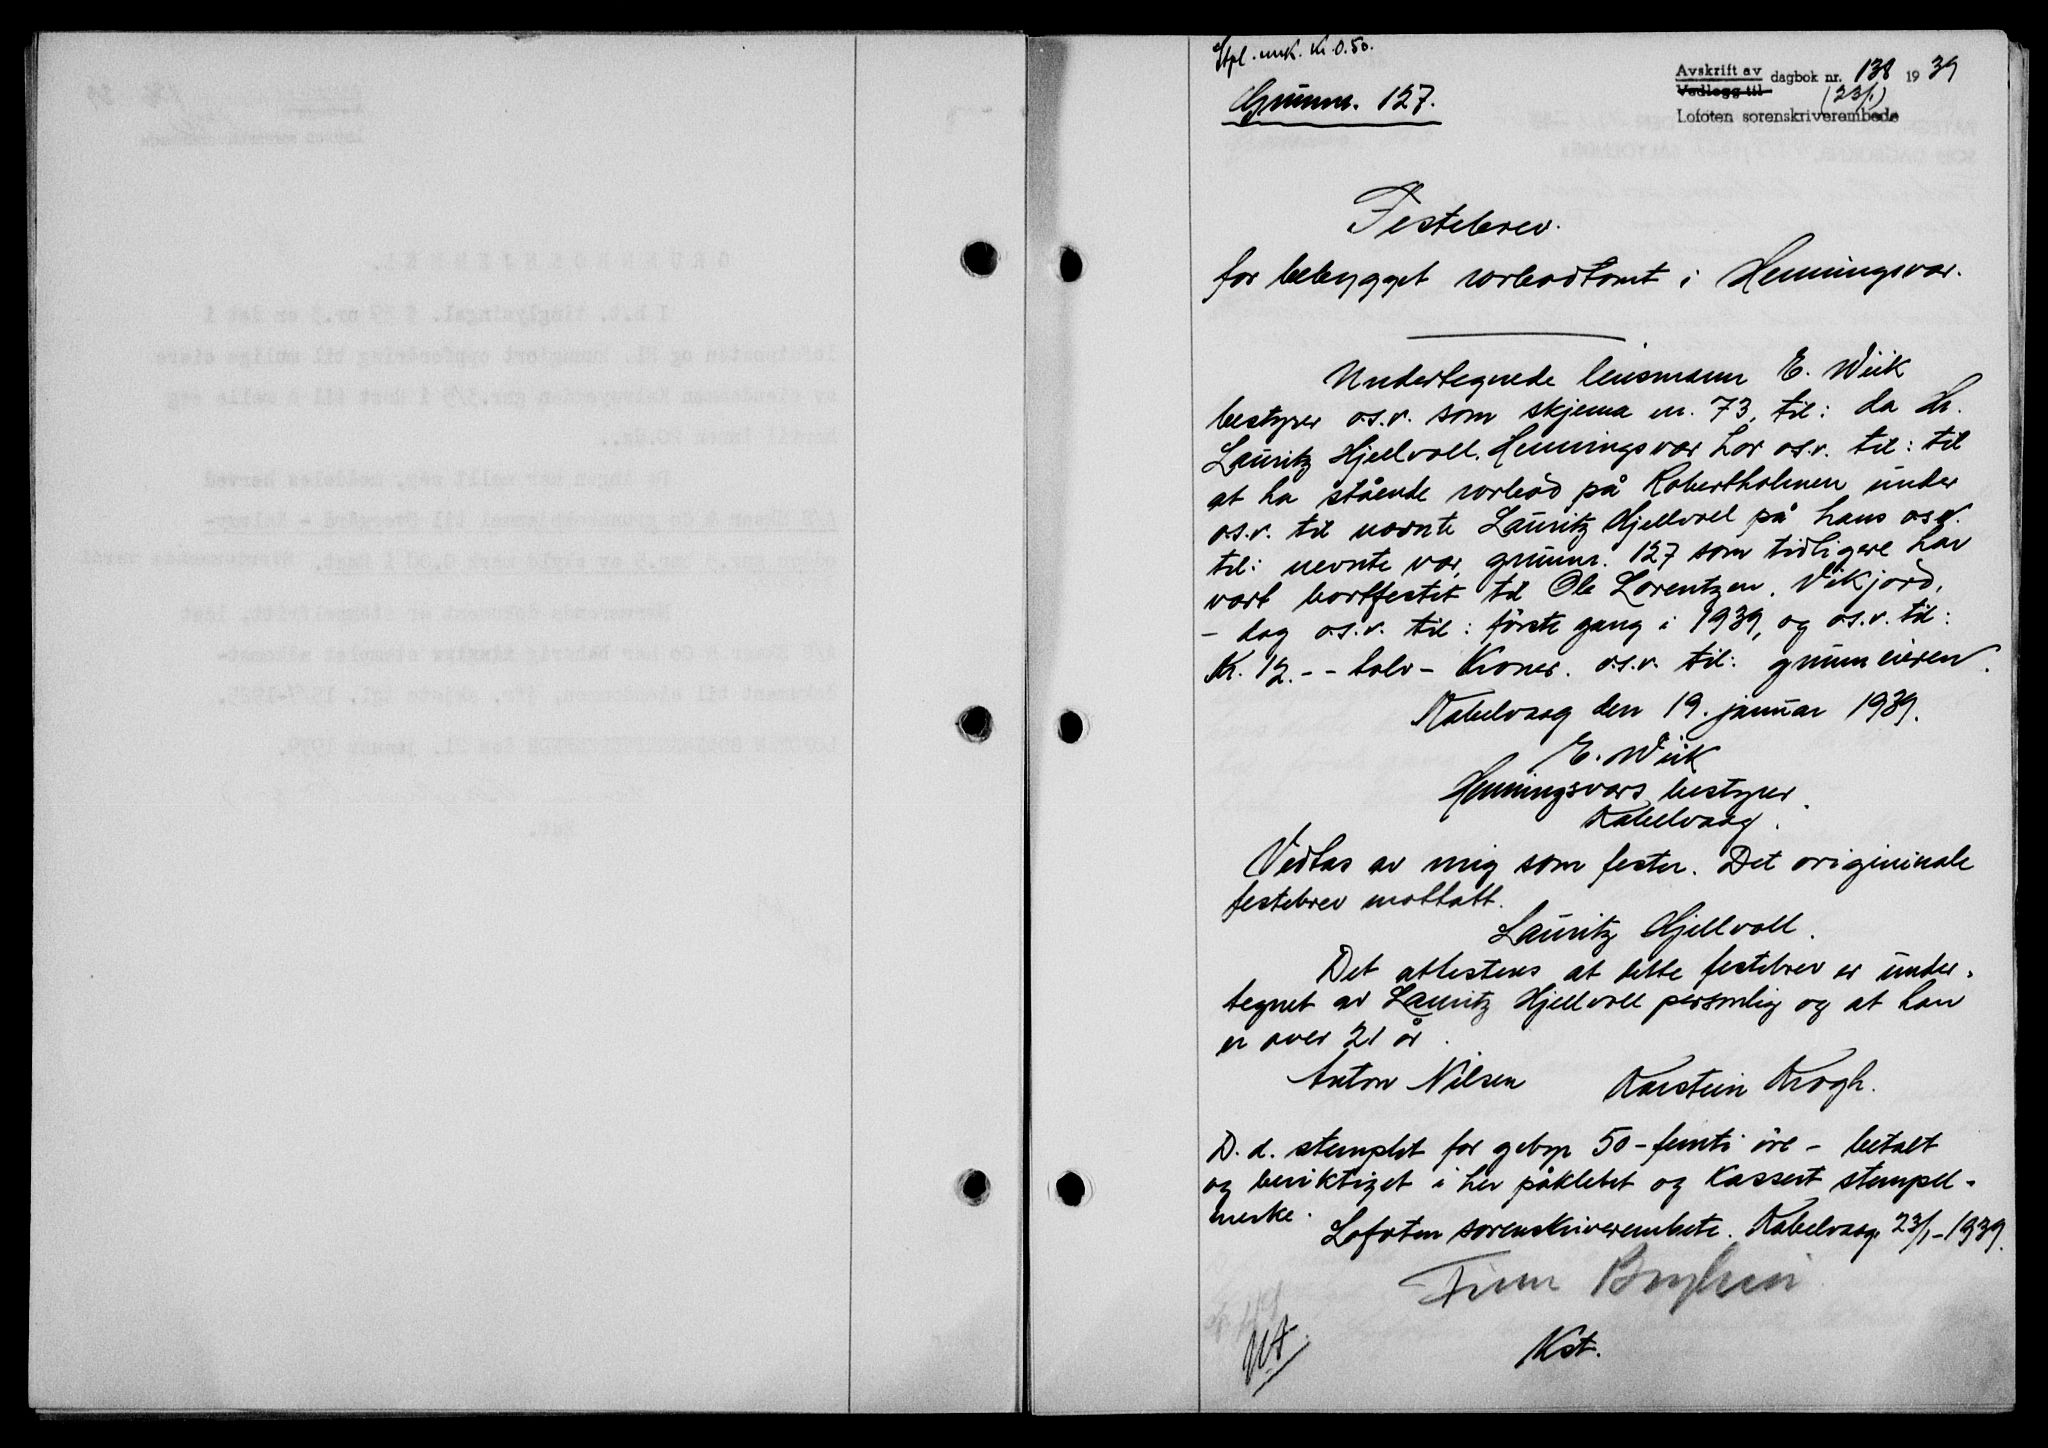 Stpl. merk. Kr. 0.50.
Grunnr. 127.
Avskrift av dagbok nr. 138 1939
Vedlegg til (23/1)
Lofoten sorenskriverembede
Festebrev.
for bebygget rorbodtomt i Henningsvær.
Undertegnede lensmann E. Wiik
bestyrer o.s.v. som skjema nr. 73, til: da Hr.
Lauritz Hjellvoll. Henningsvær har o.s.v. til: til
at ha stående rorbod på Robertholmen under
o.s.v. til nevnte Lauritz Hjellvoll på hans o.s.v.
til: nevnte vær, grunnr. 127 som tidligere har
vært bortfestet til Ole Lorentzen, Vikjord,
- dog o.s.v. til: første gang i 1939, og o.s.v. til:
Kr. 12.-- tolv- Kroner. o.s.v. til: grunneieren.
Kabelvaag den 19. januar 1939.
E. Wiik
Henningsværs bestyrer.
Kabelvaag.
Vedtas av mig som fester. Det origininale
festebrev mottatt.
Lauritz Hjellvoll.
Det attesteres at dette festebrev er under-
tegnet av Lauritz Hjellvoll personlig og at han
er over 21 år.
Anton Nilsen Karstein Krogh.
D. d. stemplet for gebyr 50-femti øre - betalt
og beriktiget i her påklebet og kassert stempel-
merke.
Lofoten sorenskriverembete. Kabelvaag 23/1-1939.
Finn
Kst.